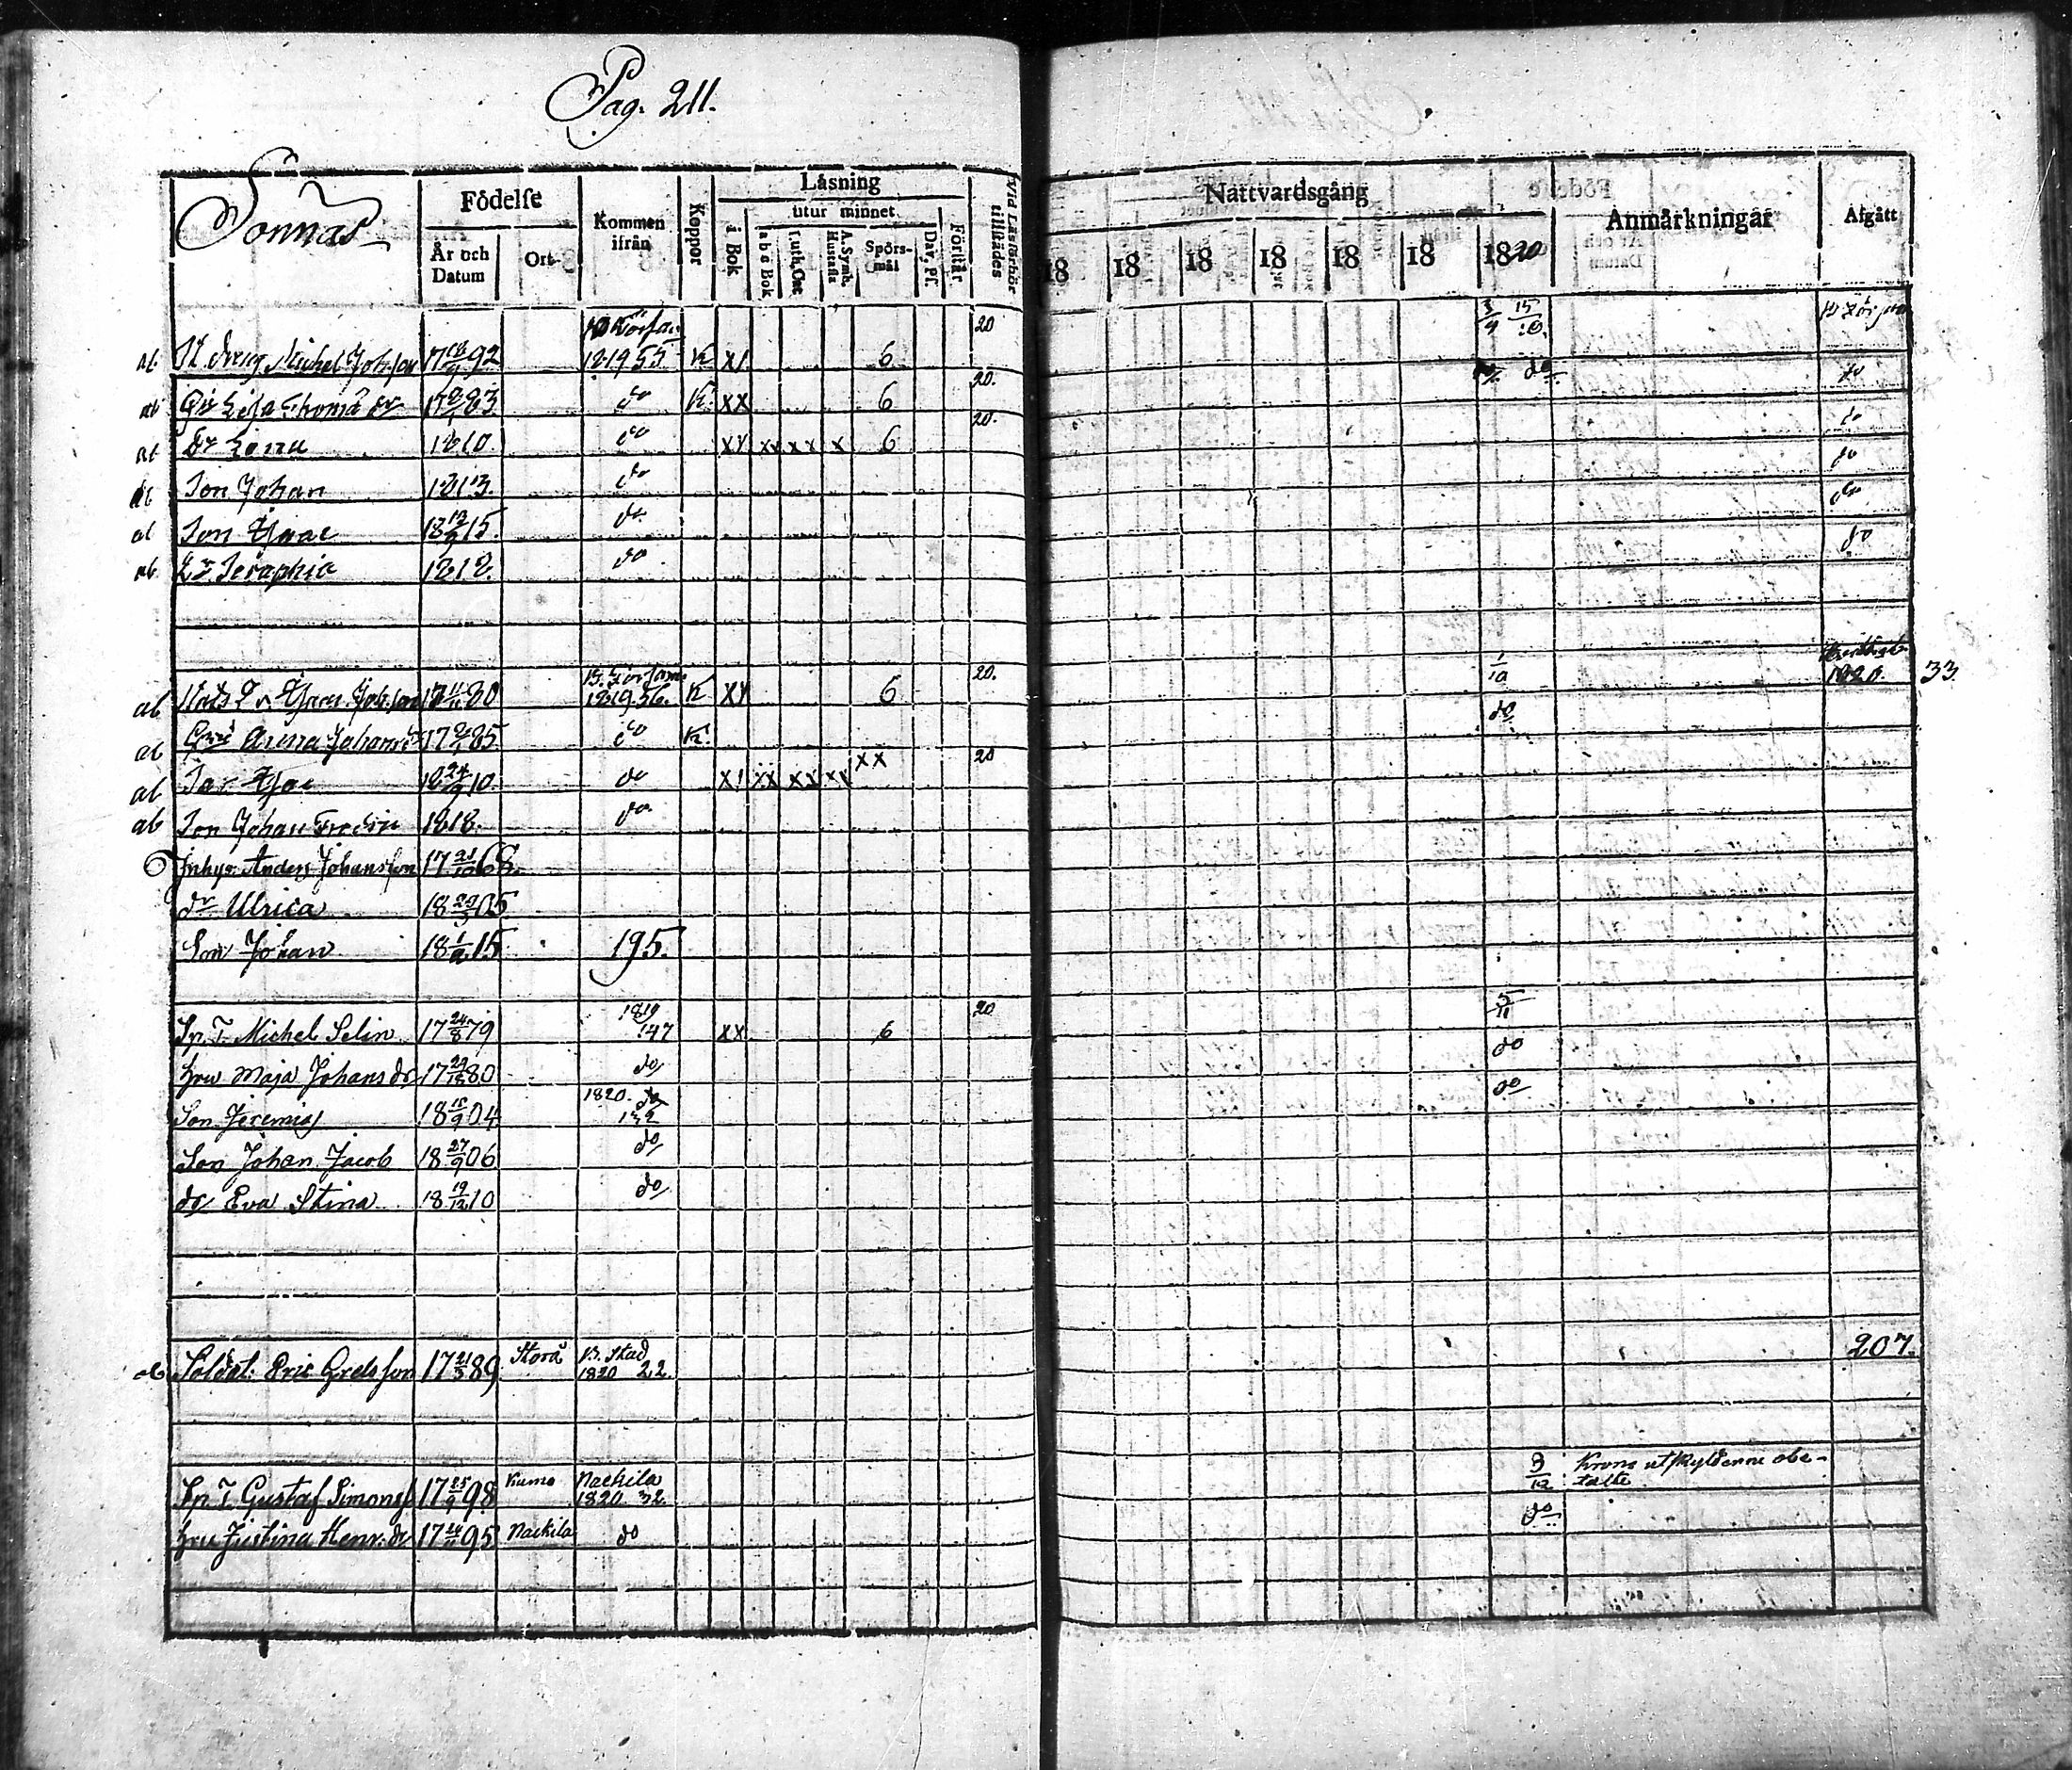 Pag. 211.
Sonnäs
Födelse
År och Datum
Ort
Kommen ifrån
Koppor
Läsning
i Bok
utur minnet
a b c Bok
Luth. Cat
A. Symb. Hustafla
Spörs-mål
Dav. Ps.
Förstår
Vid Läsförhör tillstädes
Nattvardsgång
18 18 18 18 18 18 1820
Anmärkningar
Afgått
20 3/4 15/10
ab Michel Johsson 17 92 1819 55 K XX 6 do do
20.
ab Lisa Thomæ dr 17 83 do K. XX 6 do
20.
ab dr Lena 1810. do XX xx xx x 6 do
ab Son Johan 1813. do do
ab Son Isaac 18 15. do do
ab Dr Seraphia 1818. do do
20. 1/10 1820. 33.
ab Isaac Johsson 17 80 1819 56. K XX 6
ab Anna Johans 17 85 do K. do
ab Son Isac 18 24/9 10. do XX xx xx xx XX 20
ab Son Johan Fredric 1818. do
Inhys. Anders Johansson 17 21/10 68.
dr Ulrica 18 05
Son Johan 18 1/9 15 195.
Sp. T. Michel Selin 17 24/8 79 1819 147 XX 6 20 5/11
hru Maja Johans dr 17 29/12 80 do do
Son Jeremias 18 15/9 04 1820. 132 do
Son Johan Jacob 18 27/9 06 do
dr Eva Stina 18 19/12 10 do
ab Soldat: Eric Grelsson 17 21/3 89 Storå B. Stad 1820 22. 207.
Sp. T. Gustaf Simonss 17 25/9 98 Kumo Nackila 1820 32. 3/12 Krono utskylderne obe-
talte
hru Justina Henr. dr 17 24/11 95 Nackila do do